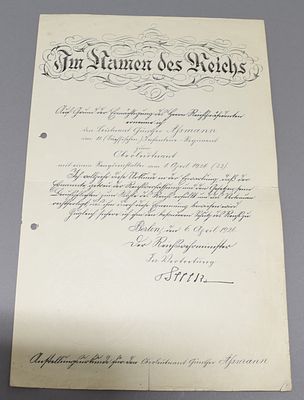 Im Namen des Reichs
Auf Grund der Ermächtigung des Herrn Reichspräsidenten
ernenne ich
den Leutnant Günther Aßmann
im 10. (Sächsischen) Infanterie-Regiment
zum
Oberleutnant
mit einem Rangdienstalter vom 1. April 1926 (22).
Ich vollziehe diese Urkunde in der Erwartung, daß der
Ernannte getreu der Reichsverfassung und den Gesetzen seine
Dienstpflichten zum Wohle des Reichs erfüllt und das Vertrauen
rechtfertigt, das ihm durch diese Ernennung bewiesen wird.
Zugleich sichere ich ihm den besonderen Schutz des Reichs zu.
Berlin, den 6. April 1926.
Der Reichswehrminister
In Vertretung
Anstellungsurkunde für den Oberleutnant Günther Aßmann